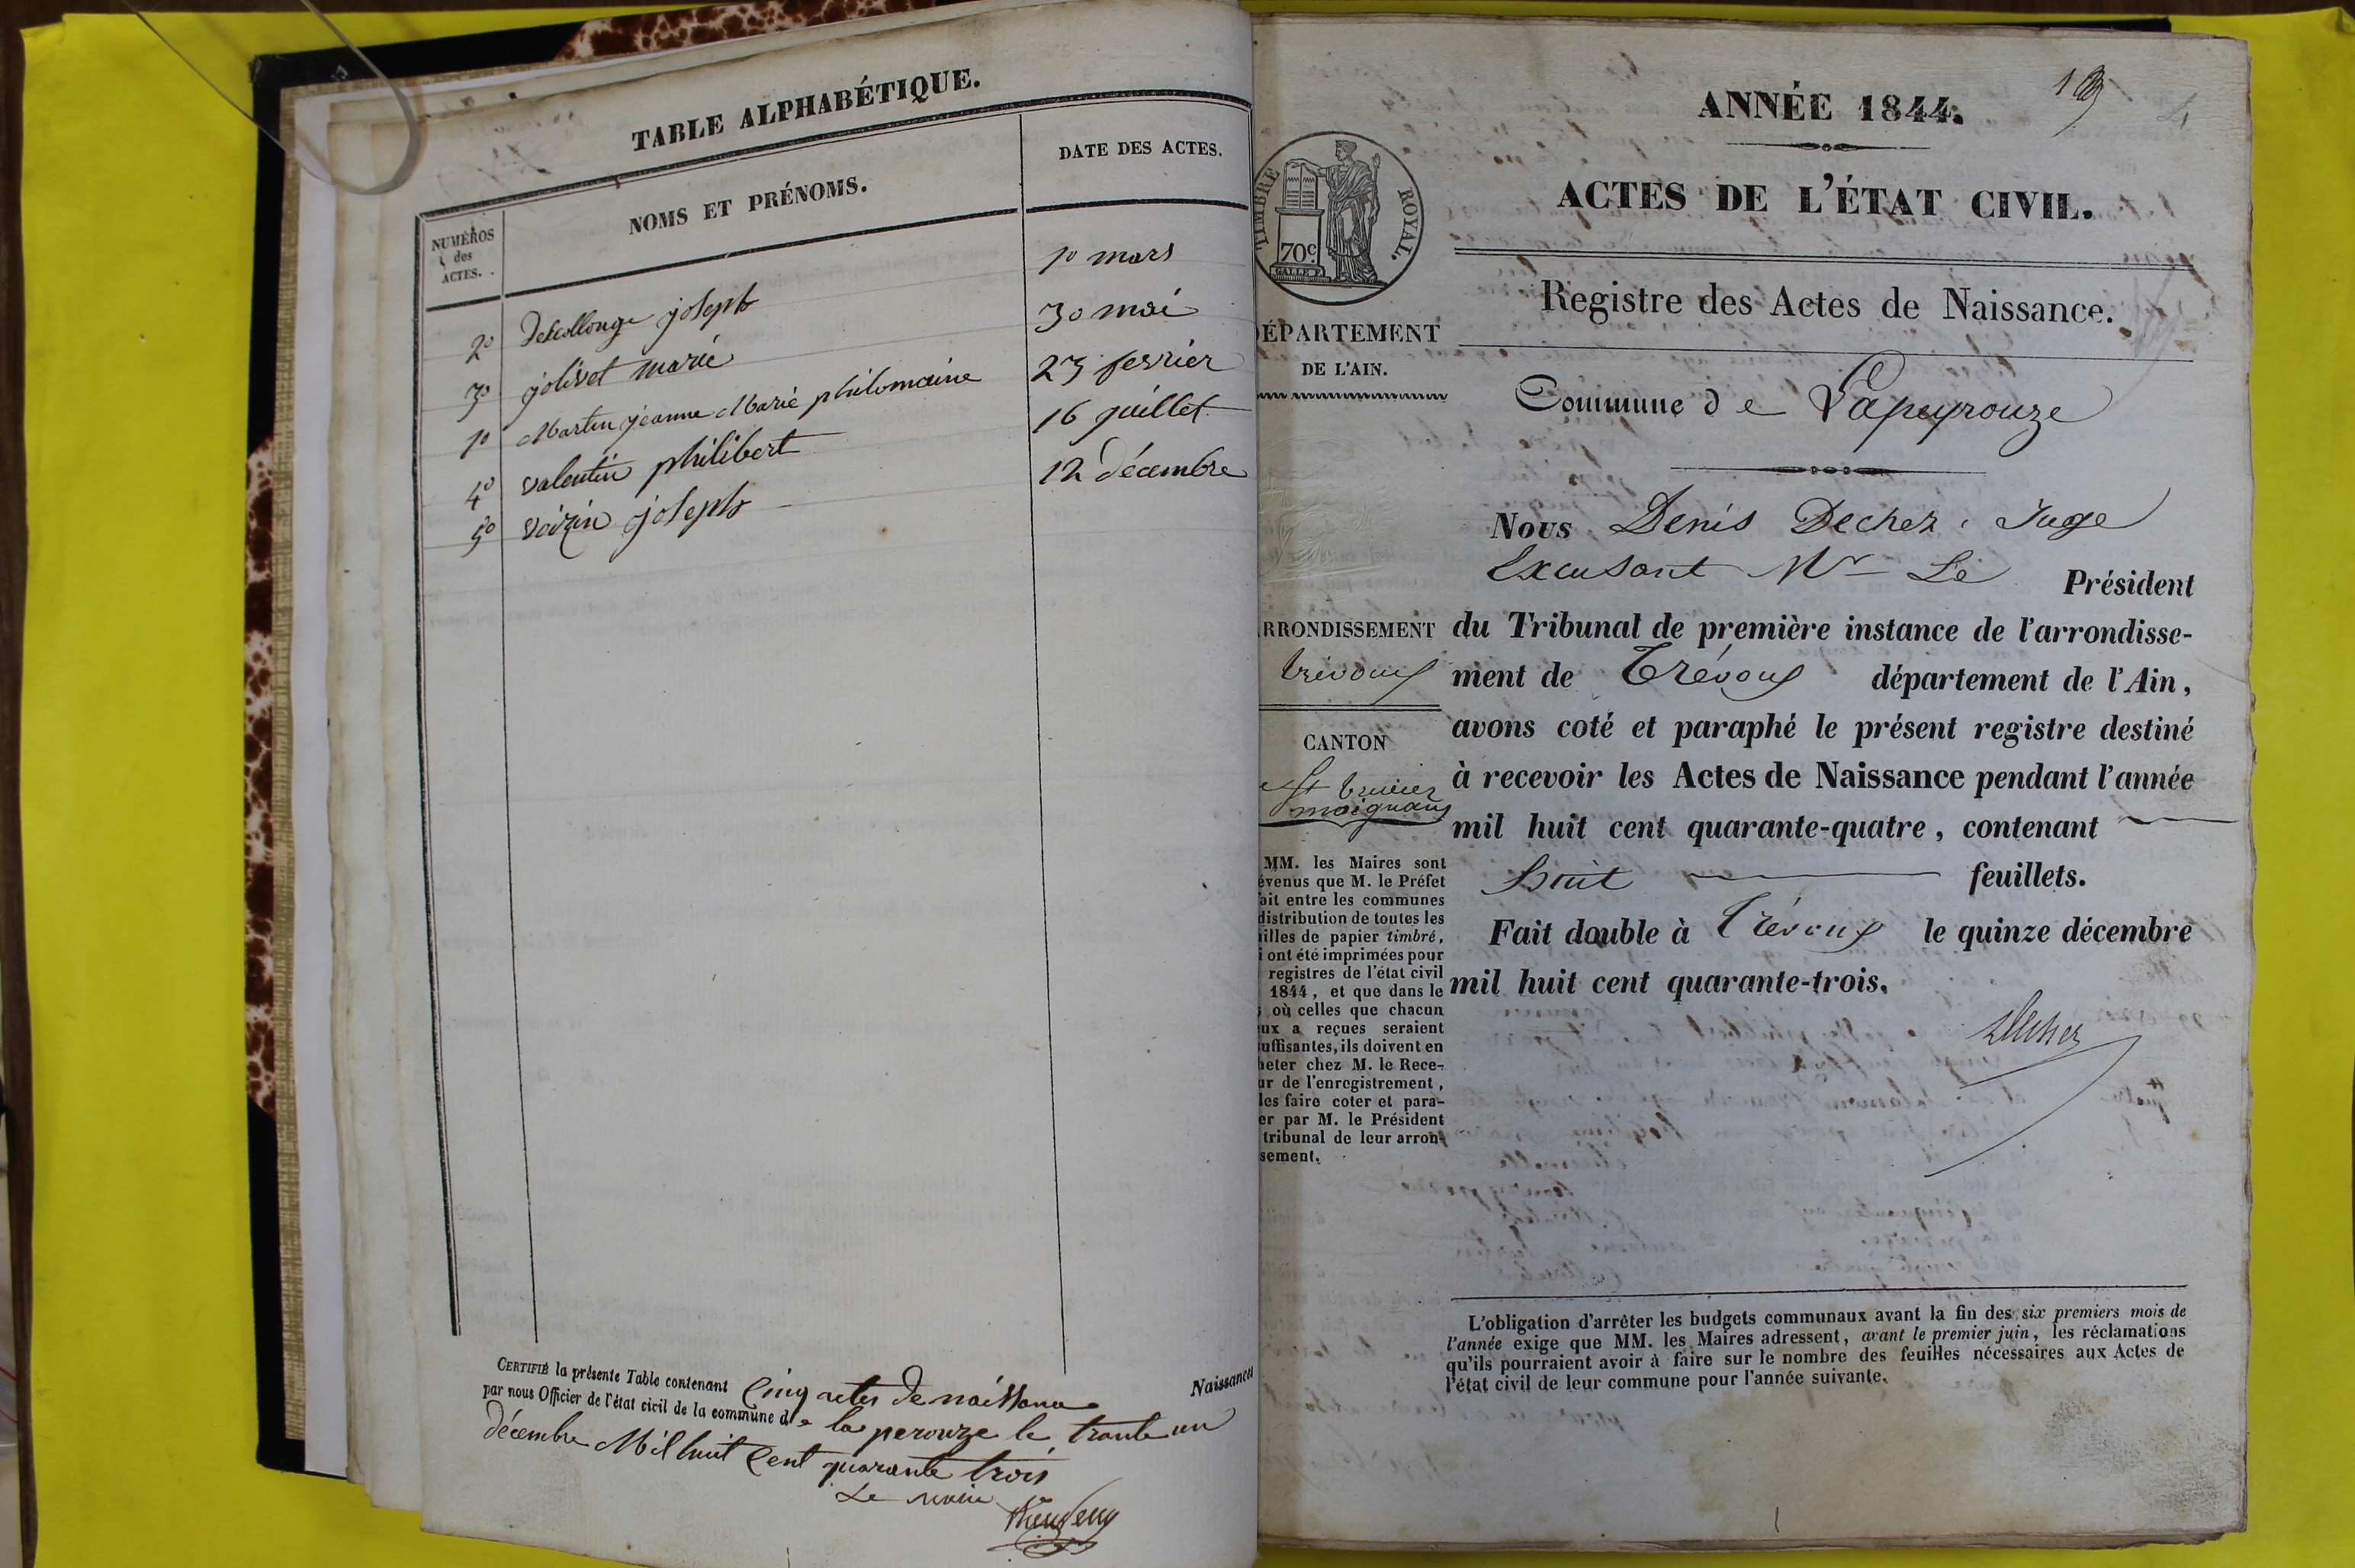 TABLE ALPHABÉTIQUE.
NUMÉROS
des
ACTES.
NOMS ET PRÉNOMS.
DATE DES ACTES.
2º Descollonge joseph 1º mars
3º jolivet marie 30 mai
1º Martin jeanne Marie philomaine 23 fevrier
4º valentin philibert 16 juillet
5º voizin joseph 12 décembre
CERTIFIÉ la présente Table contenant Cinq actes de naissance Naissances
par nous Officier de l'état civil de la commune de la perouze le trante un
décembre Mil huit Cent quarante trois
Le maire
ANNÉE 1844.
ACTES DE L'ÉTAT CIVIL.
TIMBRE ROYAL.
70c.
Registre des Actes de Naissance.
DÉPARTEMENT
DE L'AIN.
Commune de Lapeyrouze
Nous Denis Decher, Juge
Excusant Mr Le Président
du Tribunal de première instance de l'arrondisse-
ment de Trévoux département de l'Ain,
avons coté et paraphé le présent registre destiné
à recevoir les Actes de Naissance pendant l'année
mil huit cent quarante-quatre, contenant
huit feuillets.
Fait double à Trévoux le quinze décembre
mil huit cent quarante-trois.
Decher
RRONDISSEMENT
trévoux
CANTON
St trivier
moignans
MM. les Maires sont
évenus que M. le Préfet
ait entre les communes
distribution de toutes les
illes de papier timbré,
i ont été imprimées pour
registres de l'état civil
1844, et que dans le
s où celles que chacun
ux a reçues seraient
uffisantes, ils doivent en
heter chez M. le Rece-
ur de l'enregistrement,
les faire coter et para-
er par M. le Président
tribunal de leur arron-
sement.
L'obligation d'arrêter les budgets communaux avant la fin des six premiers mois de
l'année exige que MM. les Maires adressent, avant le premier juin, les réclamations
qu'ils pourraient avoir à faire sur le nombre des feuilles nécessaires aux Actes de
l'état civil de leur commune pour l'année suivante.